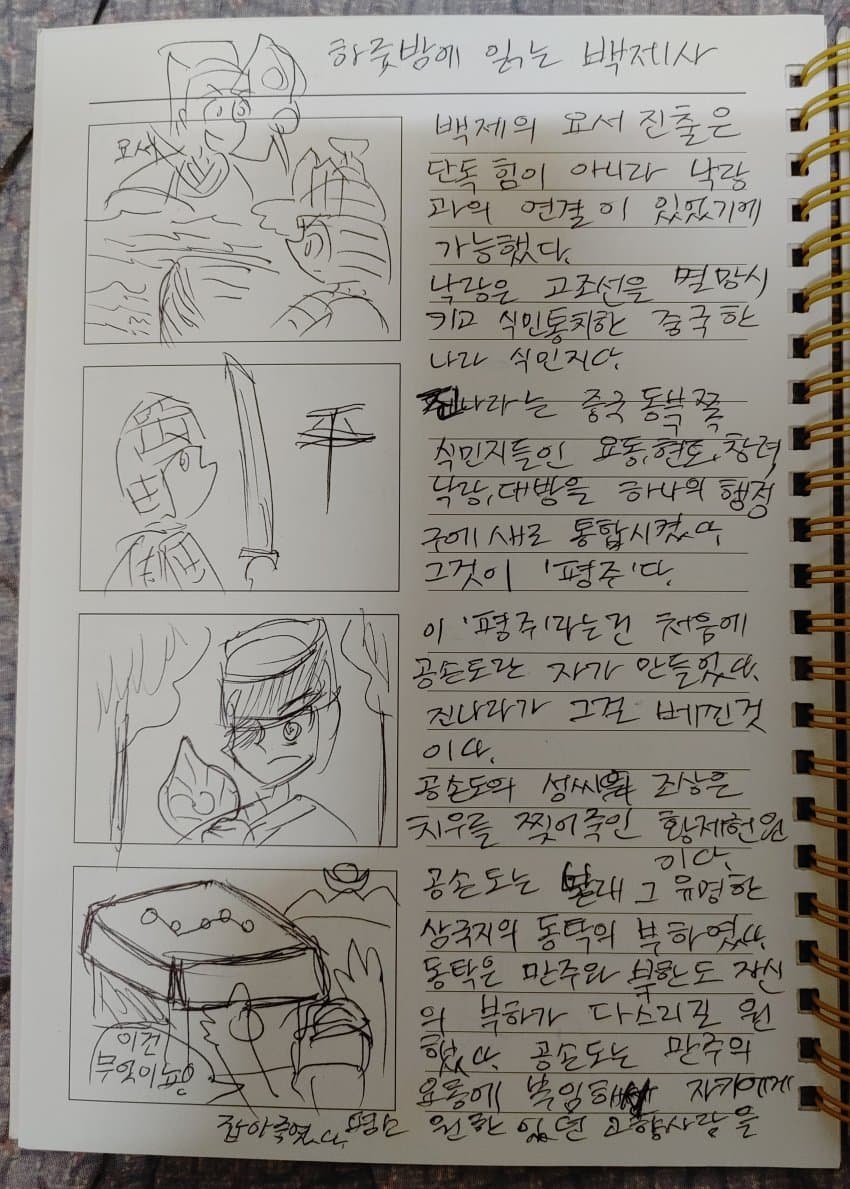 하룻밤에 읽는 백제사
요서
백제의 요서 진출은
단독 힘이 아니라 낙랑
과의 연결이 있었기에
가능했다.
낙랑은 고조선을 멸망시
키고 식민통치한 중국 한
나라 식민지다.
平
진나라는 중국 동북쪽
식민지들인 요동, 현도, 창려
낙랑, 대방을 하나의 행정
구에 새로 통합시켰다.
그것이 '평주'다.
이 '평주'라는건 처음에
공손도란 자가 만들었다.
진나라가 그걸 베낀것
이다.
공손도의 성씨 조상은
치우를 찢어죽인 황제헌원
이다.
공손도는 본래 그 유명한
삼국지의 동탁의 부하였다.
동탁은 만주와 북한도 자신
의 부하가 다스리길 원
했다. 공손도는 만주의
요동에 부임해 자기에게
원한 있던 고향사람을
잡아죽였다. 평소
이건
무엇이뇨!